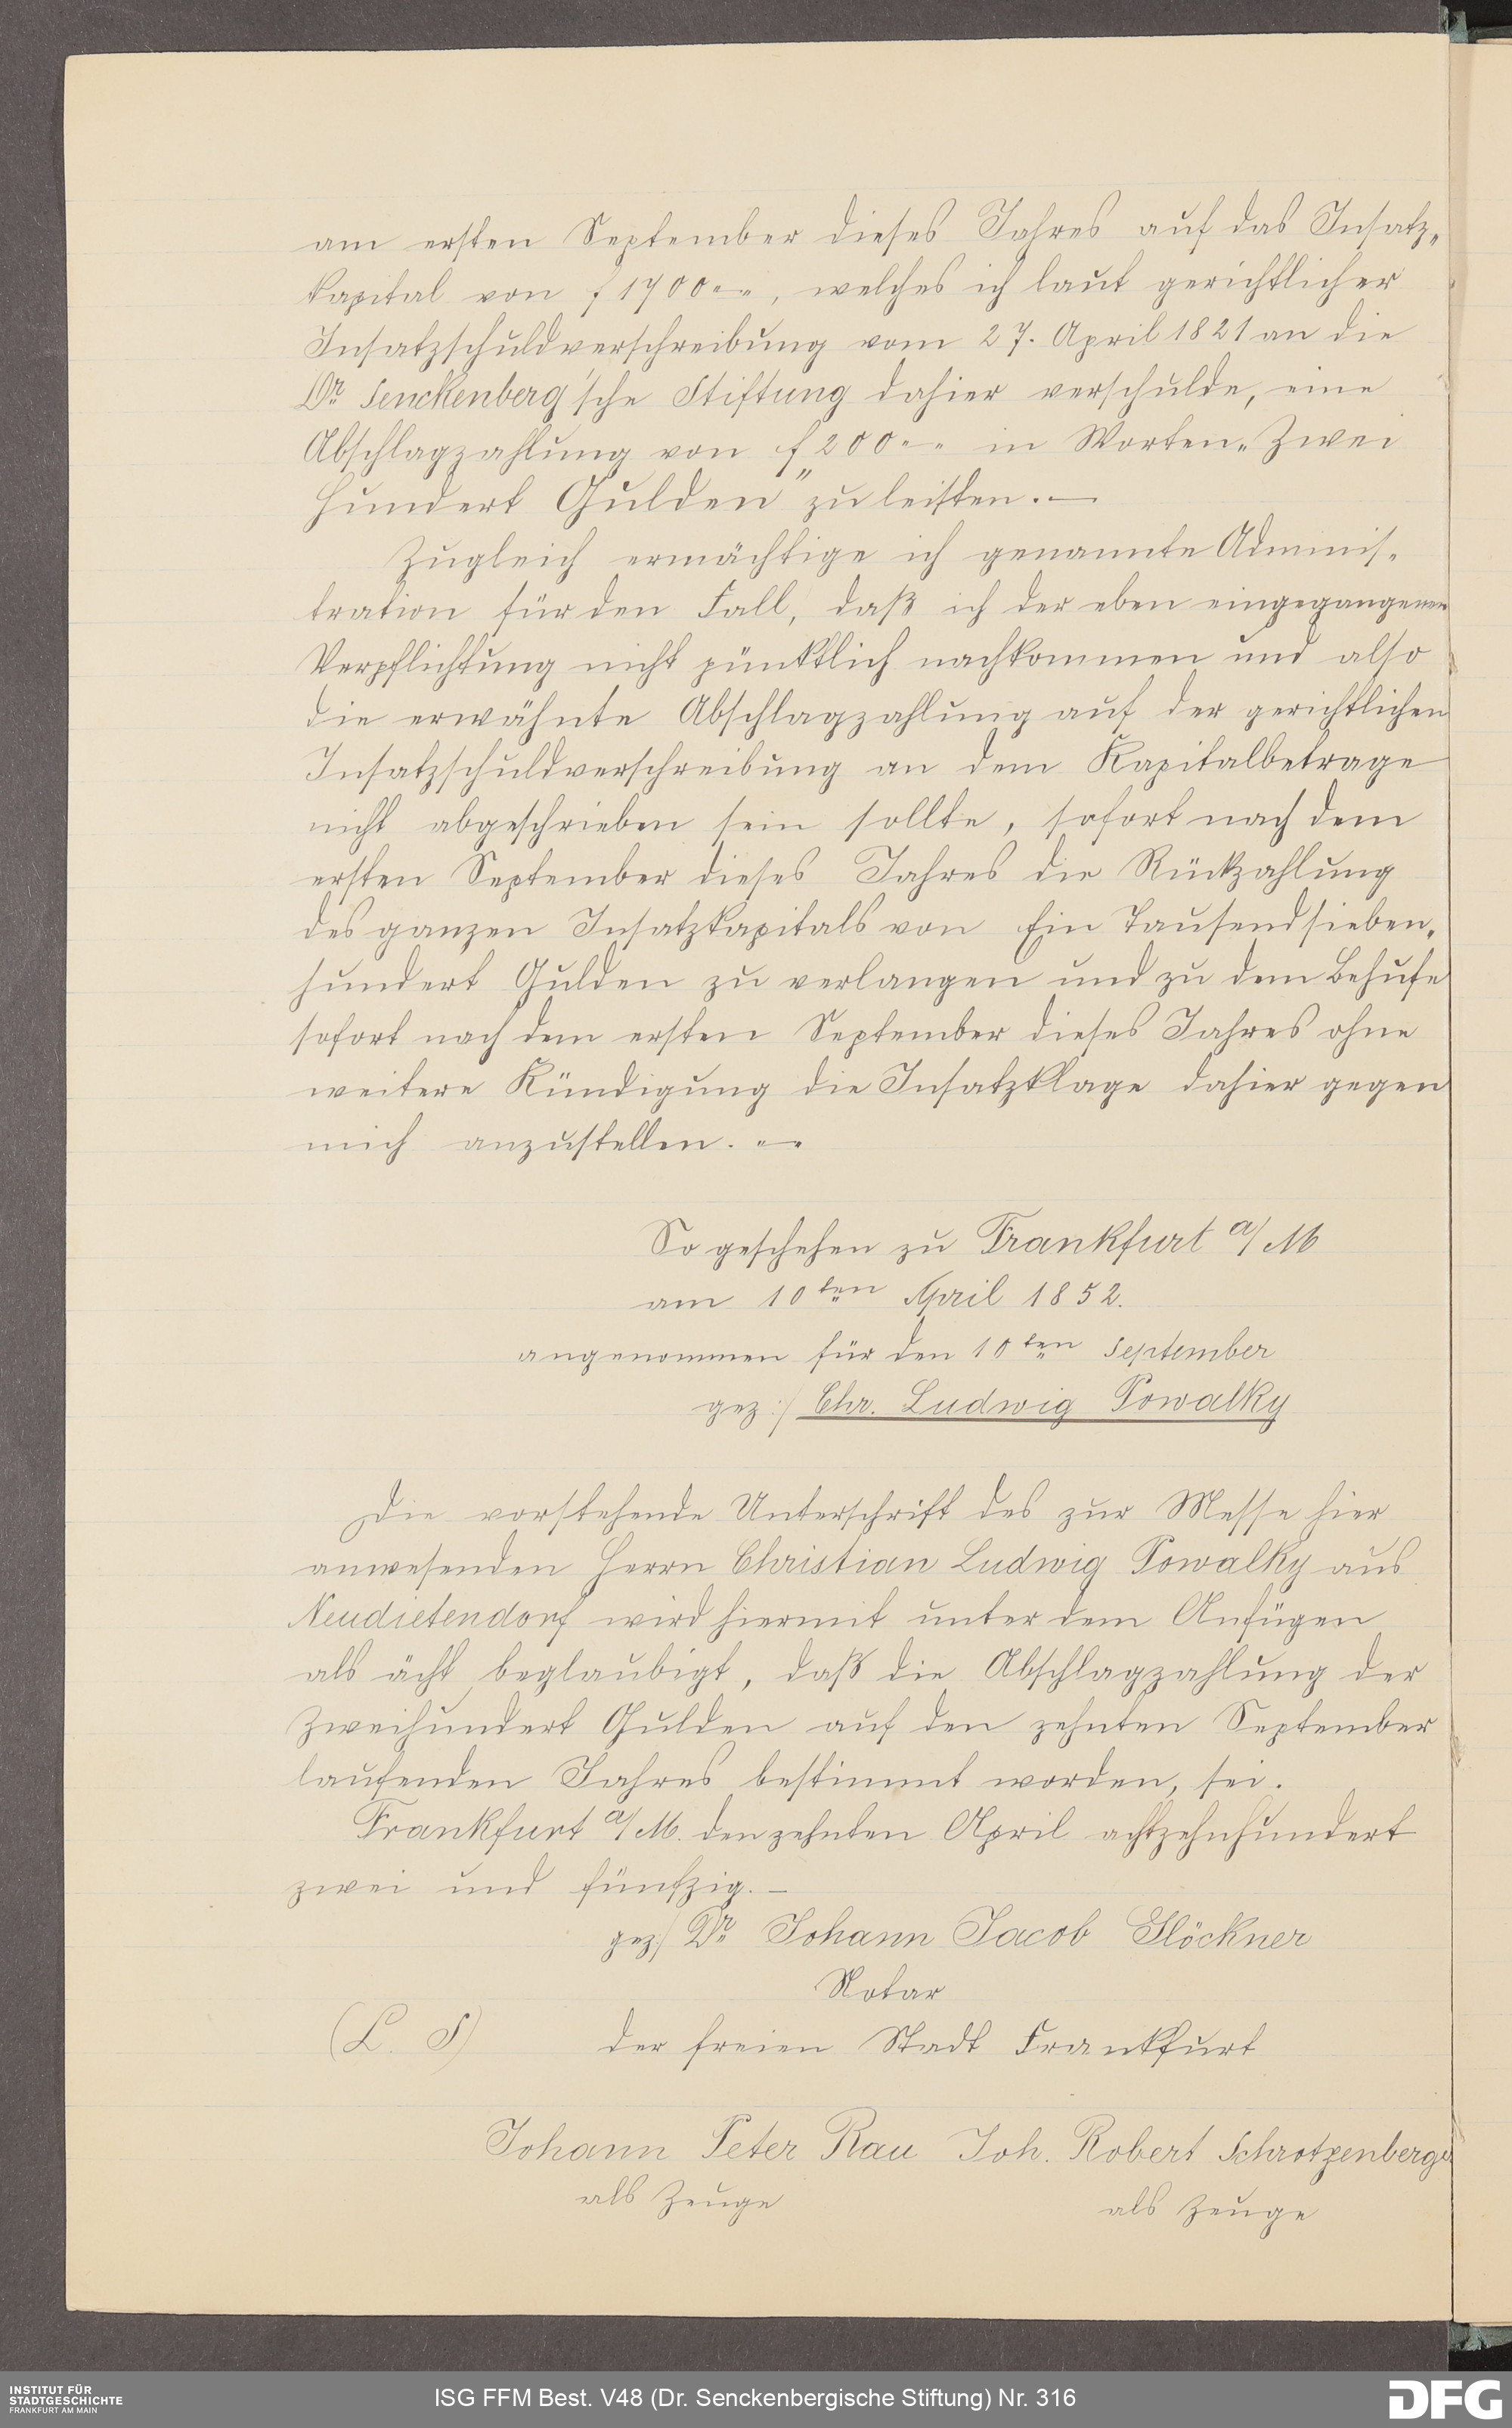 am ersten September dieses Jahres auf das Insatz„
kapital von f 1700 „—„, welches ich laut gerichtlicher
Insatzschuldverschreibung vom 27. April 1821 an die
Dr. Senckenberg'sche Stiftung dahier verschulde, eine
Abschlagzahlung von f 200 „—„ in Worten „Zwei
Hundert Gulden" zu leisten. —
Zugleich ermächtige ich genannte Adminis-
tration für den Fall, daß ich der eben eingegangenen
Verpflichtung nicht pünktlich nachkommen und also
die erwähnte Abschlagzahlung auf der gerichtlichen
Insatzschuldverschreibung an dem Kapitalbetrage
nicht abgeschrieben sein sollte, sofort nach dem
ersten September dieses Jahres die Rückzahlung
des ganzen Insatzkapitals von Ein Tausendsieben„
hundert Gulden zu verlangen und zu dem Behufe
sofort nach dem ersten September dieses Jahres ohne
weitere Kündigung die Insatzklage dahier gegen
mich anzustellen. „—„
So geschehen zu Frankfurt a/M
am 10ten April 1852.
angenommen für den 10ten September
gez:/ Chr. Ludwig Powalky
Die vorstehende Unterschrift des zur Messe hier
anwesenden Herrn Christian Ludwig Powalky aus
Neudietendorf wird hiermit unter dem Anfügen
als ächt beglaubigt, daß die Abschlagzahlung der
Zweihundert Gulden auf den zehnten September
laufenden Jahres bestimmt worden, sei.
Frankfurt a/M. den zehnten April achtzehnhundert
zwei und fünfzig. —
gez:/ Dr. Johann Jacob Glöckner
Notar
(L. S)
der freien Stadt Frankfurt
Johann Peter Rau Joh. Robert Schrotzenberger
als Zeuge als Zeuge
INSTITUT FÜR
STADTGESCHICHTE
FRANKFURT AM MAIN
ISG FFM Best. V48 (Dr. Senckenbergische Stiftung) Nr. 316
DFG